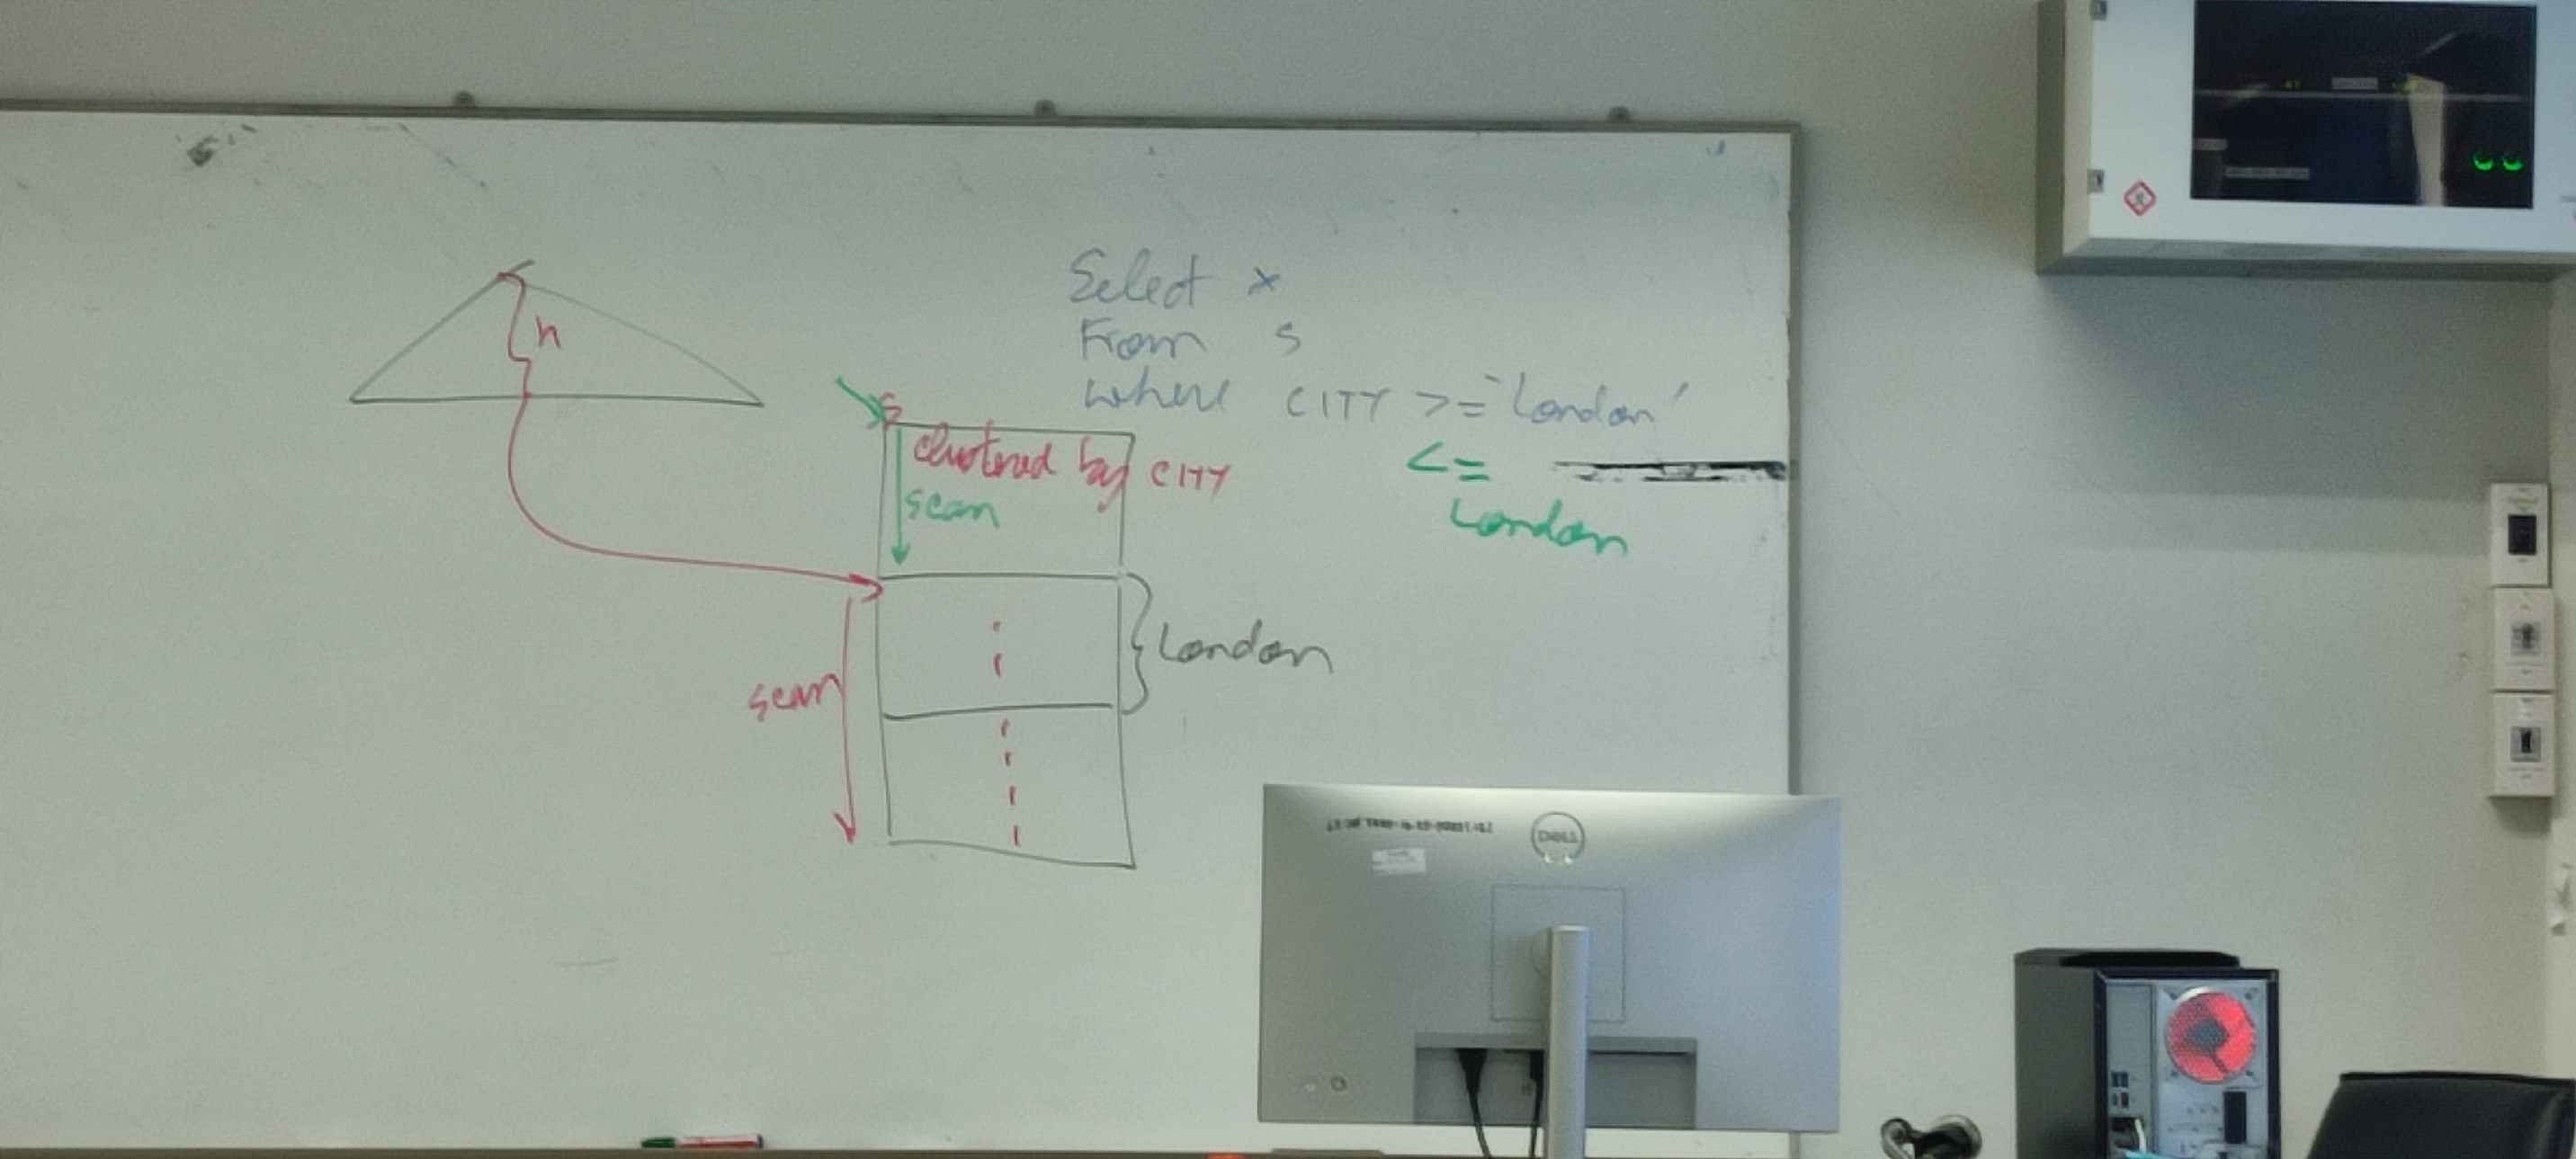 Select *
From S
where CITY >= 'London'
<=
London
h
S
clustered by CITY
scan
London
scan
DELL